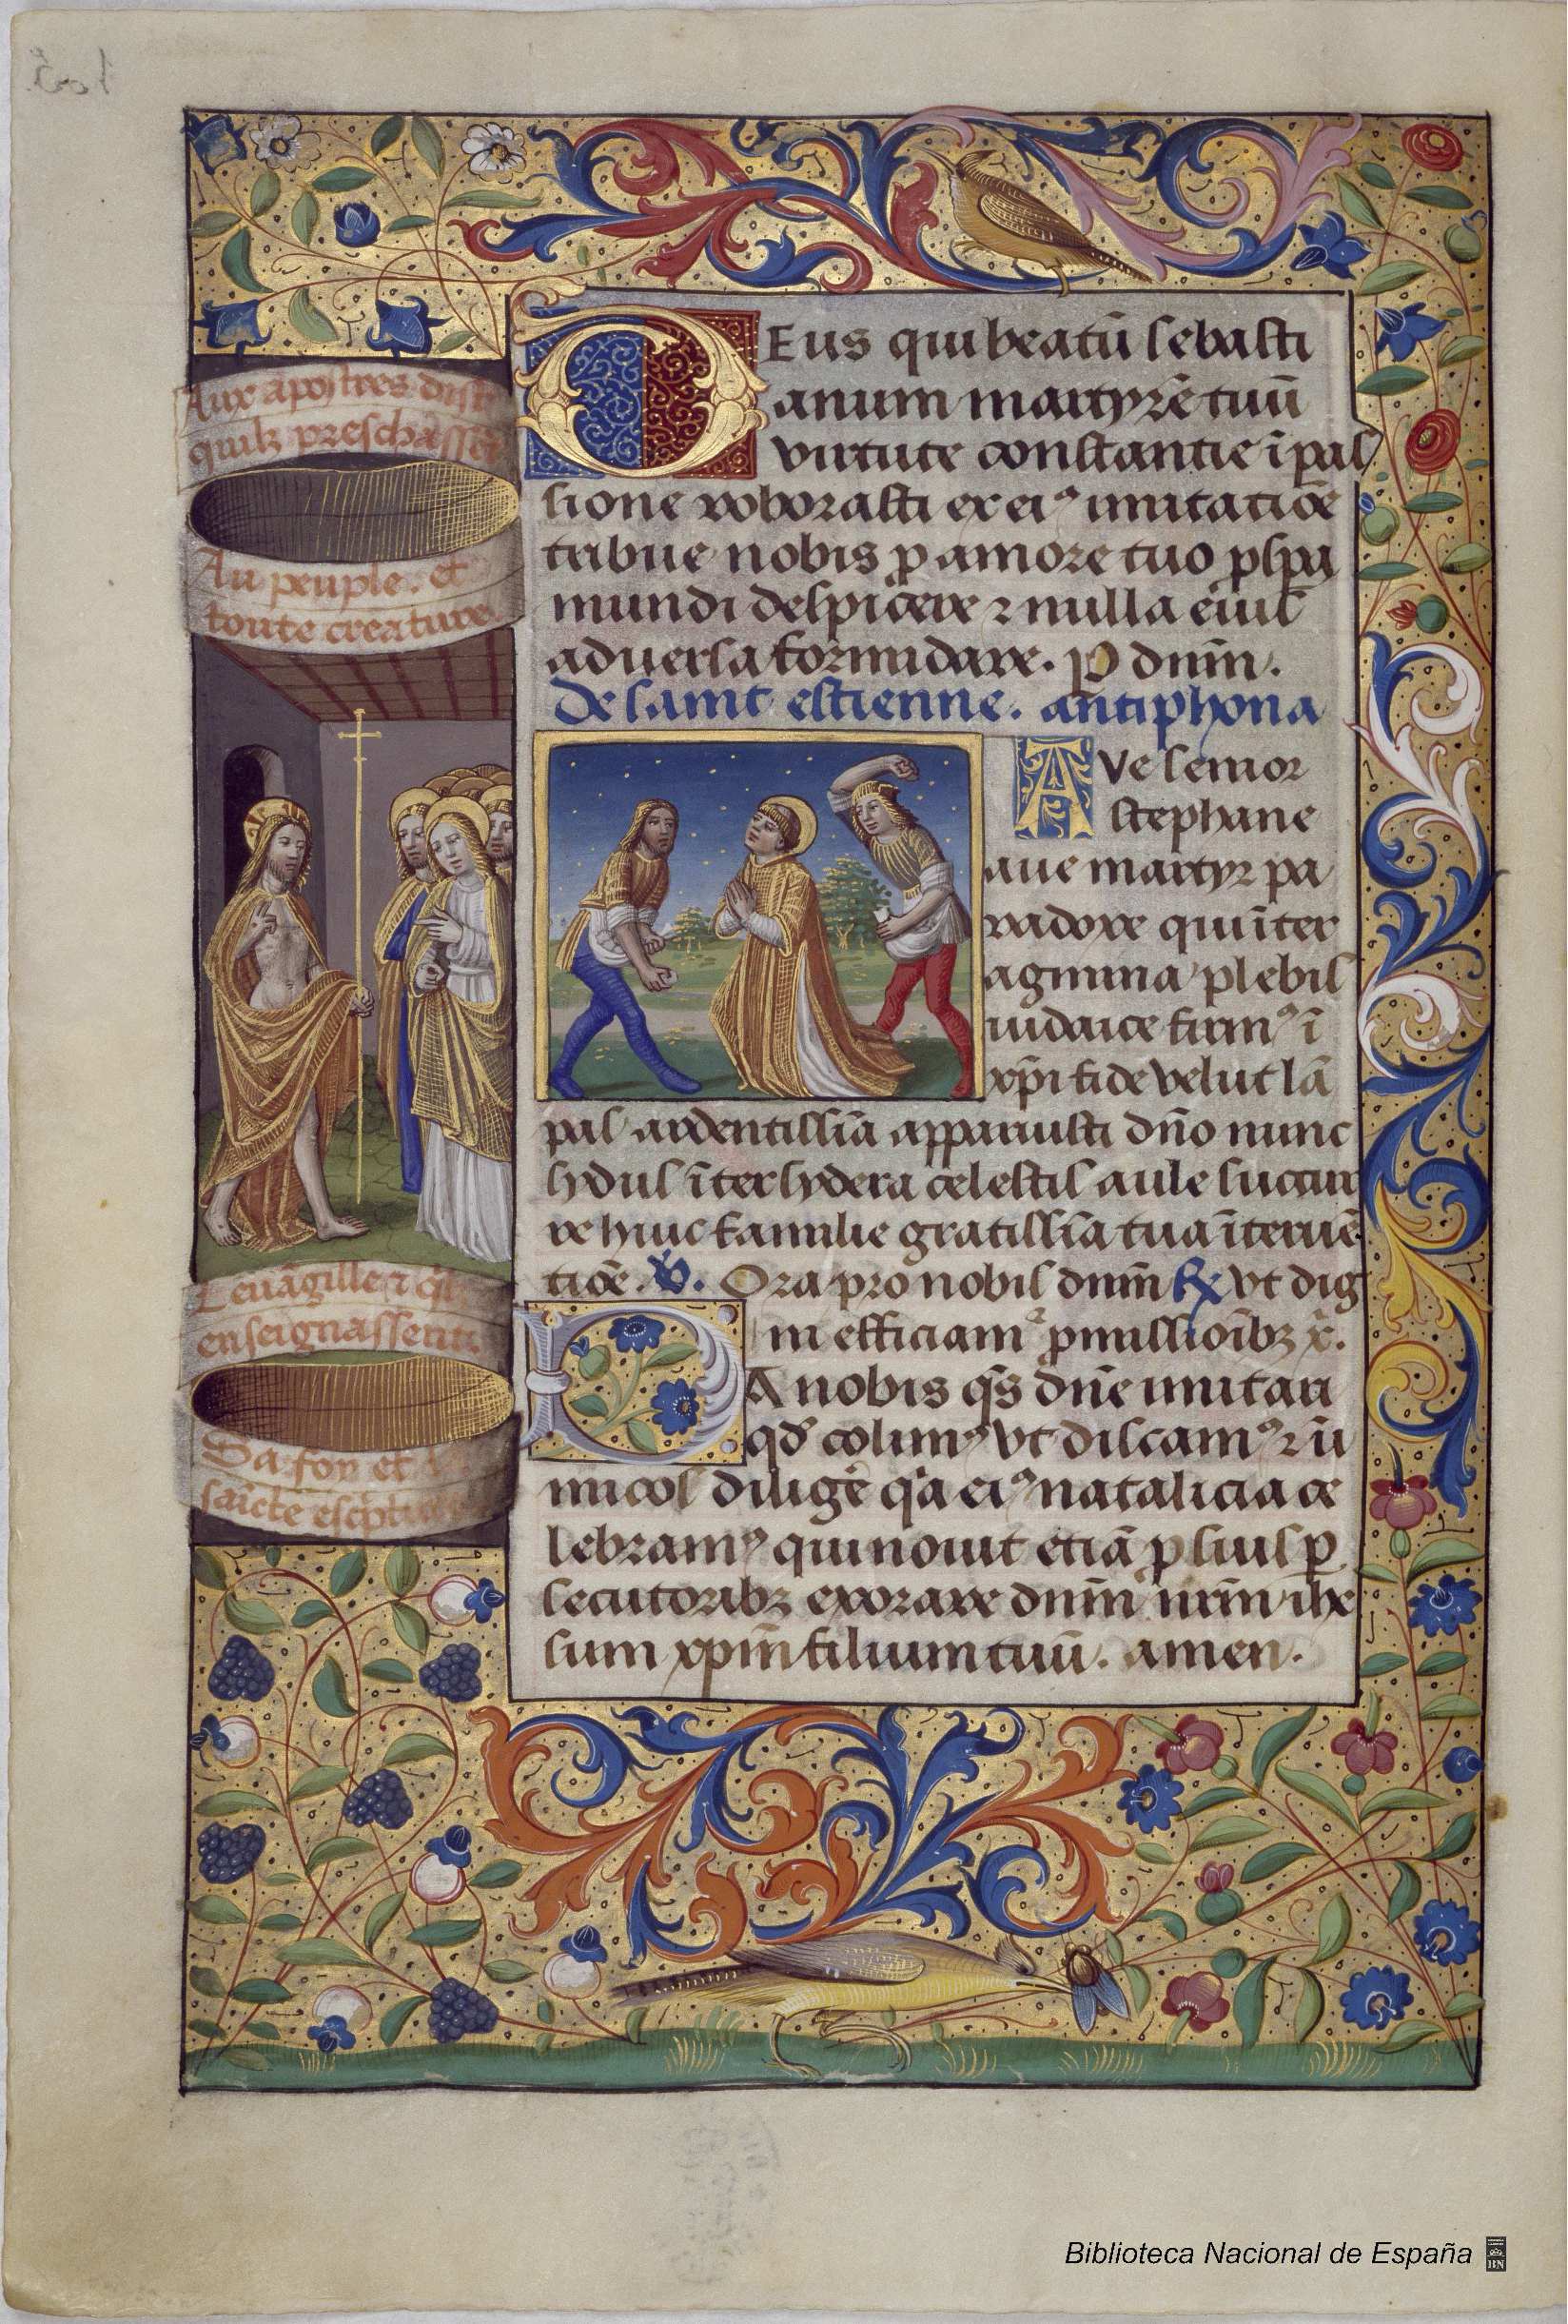 Aux apostres dist
quilz preschassēt
Au peuple. et
toute creature.
Leuāgille ⁊ q̄lz
enseignassent
Sa foy et
saīcte escptu
DEus qui beatū sebasti
anum martyrē tuū
virtute constantie ī pas
sione roborasti ex eiꝰ imitatiōe
tribue nobis ꝓ amore tuo ꝓspa
mundi despicere ⁊ nulla eius
aduersa formidare. P dnm̄.
De saint estienne. antiphona
AVe senior
stephane
aue martyr pa
radoxe qui īter
agmina plebis
iudaice firmꝰ ī
xp̄i fide velut lā
pas ardentissīa apparuisti dn̄o nunc
sydus īter sydera celestis aule succur
re huic familie gratissīa tua īteruē
tiōe. ℣. Ora pro nobis dnm̄ ℟ vt dig
ni efficiamꝰ pmissiōibꝫ x̄.
DA nobis qs̄ dn̄e imitari
qd̄ colimꝰ vt discamꝰ ⁊ ī
imicos diligē q̇a eiꝰ natalicia ce
lebramꝰ qui nouit etiā ꝓ suis ꝑ
secutoribꝫ exorare dnm̄ nr̄m ihe
sum xp̄m filium tuū. amen.
Biblioteca Nacional de España